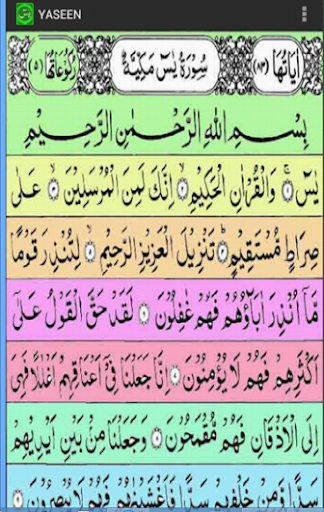 YASEEN
اٰيَاتُهَا (٨٣) سُوْرَةُ يٰسٓ مَكِّيَّةٌ رُكُوْعَاتُهَا (٥)
بِسْمِ اللّٰهِ الرَّحْمٰنِ الرَّحِيْمِ
يٰسٓ ۚ۝١ وَالْقُرْاٰنِ الْحَكِيْمِ ۙ۝٢ اِنَّكَ لَمِنَ الْمُرْسَلِيْنَ ۙ۝٣ عَلٰى
صِرَاطٍ مُّسْتَقِيْمٍ ؕ۝٤ تَنْزِيْلَ الْعَزِيْزِ الرَّحِيْمِ ۙ۝٥ لِتُنْذِرَ قَوْمًا
مَّاۤ اُنْذِرَ اٰبَآؤُهُمْ فَهُمْ غٰفِلُوْنَ ۝٦ لَقَدْ حَقَّ الْقَوْلُ عَلٰٓى
اَكْثَرِهِمْ فَهُمْ لَا يُؤْمِنُوْنَ ۝٧ اِنَّا جَعَلْنَا فِيْۤ اَعْنَاقِهِمْ اَغْلٰلًا فَهِيَ
اِلَى الْاَذْقَانِ فَهُمْ مُّقْمَحُوْنَ ۝٨ وَجَعَلْنَا مِنْۢ بَيْنِ اَيْدِيْهِمْ
سَدًّا وَّمِنْ خَلْفِهِمْ سَدًّا فَاَغْشَيْنٰهُمْ فَهُمْ لَا يُبْصِرُوْنَ ۝٩